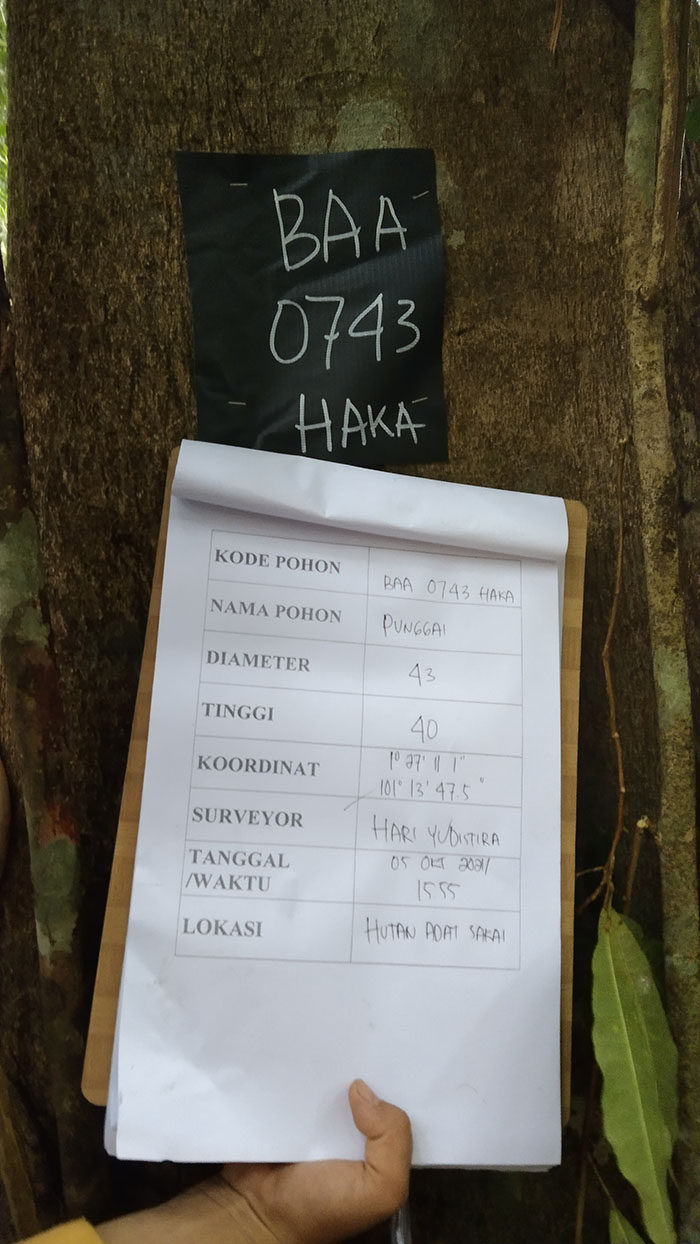 BAA
0743
HAKA
KODE POHON
BAA 0743 HAKA
NAMA POHON
PUNGGAI
DIAMETER
43
TINGGI
40
KOORDINAT
1° 27' 11 1"
101° 13' 47.5"
SURVEYOR
HARI YUDISTIRA
TANGGAL
/WAKTU
05 OKT 2021/
1555
LOKASI
HUTAN ADAT SAKAI